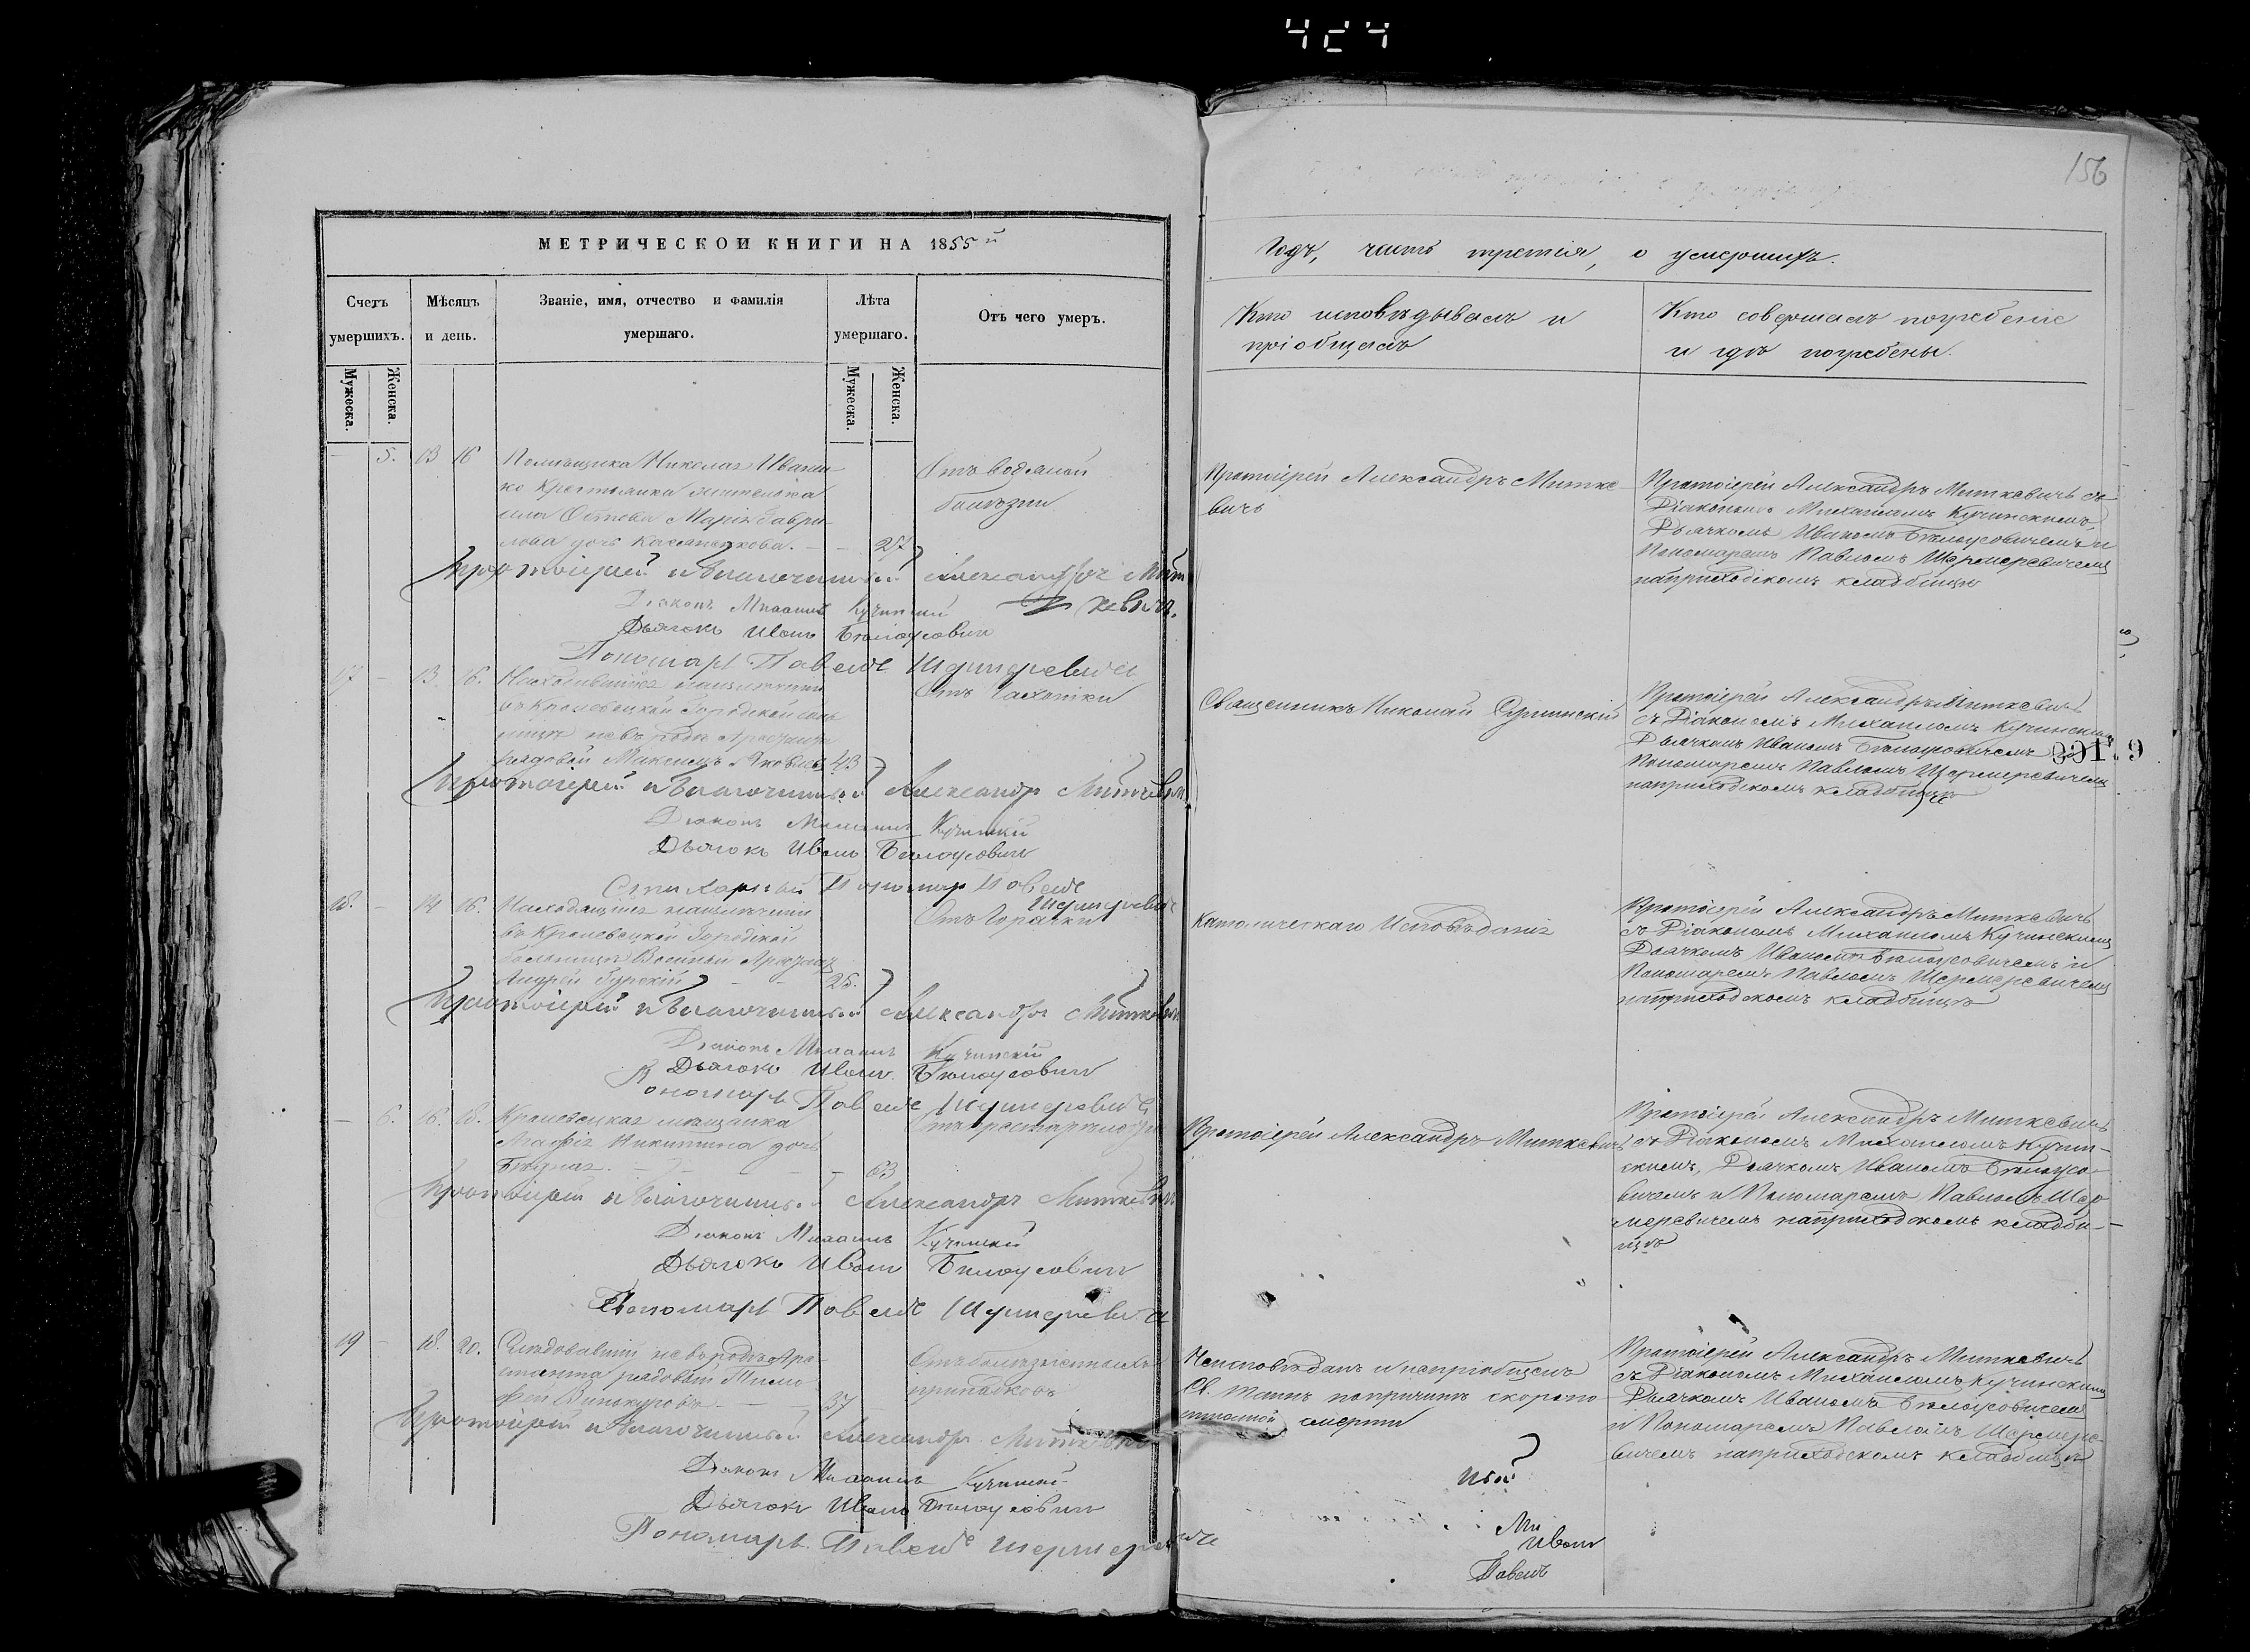 424
156
МЕТРИЧЕСКОИ КНИГИ НА 1855й
Годъ, часть третія, о умершихъ.
Счетъ умершихъ.
Мѣсяцъ и день.
Званіе, имя, отчество и фамилія умершаго.
Лѣта умершаго.
Отъ чего умеръ.
Кто исповѣдывалъ и
пріобщалъ
Кто совершалъ погребеніе
и гдѣ погребены.
Мужеска.
Женска.
Мужеска.
Женска.
5. 13 16
Помѣщика Николая Иванен-
ко Крестьянка жителька
села Марія Гаври-
лова дочь 27
Отъ водяной
болѣзни
Протоіерей Александръ Митке-
вичъ
Протоіерей Александръ Миткевичъ съ
Діакономъ Михаиломъ Кучинскимъ,
Дьячкомъ Иваномъ Бѣлоусовичемъ и
Пономаремъ Павломъ Шермеревичемъ
наприходскомъ кладбищѣ
Протоіерей и Благочинный Александръ Мит-
кевичъ.
Діаконъ Михаилъ Кучинскій
Дьячокъ Иванъ Бѣлоусовичъ
Пономарь Павелъ Шермеревичъ
17 - 13. 16.
Находившійся наизлеченіи
въ Кролевецкой Городской боль-
ницѣ
рядовой Максимъ Яковлевъ 43
Отъ Чахотки
Священникъ Николай
Протоіерей Александръ Миткевичъ
съ Діакономъ Михаиломъ Кучинскимъ
Дьячкомъ Иваномъ Бѣлоусовичемъ и
Пономаремъ Павломъ Шермеревичемъ
наприходскомъ кладбищѣ
Протоіерей и Благочинный Александръ Миткевичъ
Діаконъ Михаилъ Кучинскій
Дьячокъ Иванъ Бѣлоусовичъ
Стихарный Пономарь Павелъ
Шермеревичъ
18. - 14 16.
Находящійся наизлеченіи
въ Кролевецкой Городской
больницѣ Военный
Андрей Гурскій - - 25.
Отъ Горячки
Католическаго Исповѣданія
Протоіерей Александръ Миткевичъ
съ Діакономъ Михаиломъ Кучинскимъ
Дьячкомъ Иваномъ Бѣлоусовичемъ и
Пономаремъ Павломъ Шермеревичемъ
наприходскомъ кладбищѣ
Протоіерей и Благочинный Александръ Миткевичъ
Діаконъ Михаилъ Кучинскій
Дьячокъ Иванъ Бѣлоусовичъ
Пономарь Павелъ Шермеревичъ
- 6. 16. 18.
Кролевецкая мѣщанка
Агафія Никитина дочь
63
Протоіерей Александръ Миткевичъ
Протоіерей Александръ Миткевичъ
съ Діакономъ Михаиломъ Кучин-
скимъ, Дьячкомъ Иваномъ Бѣлоусо-
вичемъ и Пономаремъ Павломъ Шер-
меревичемъ наприходскомъ кладби-
щѣ
Протоіерей и Благочинный Александръ Миткевичъ
Діаконъ Михаилъ Кучинскій
Дьячокъ Иванъ Бѣлоусовичъ
Пономарь Павелъ Шермеревичъ
19 - 18. 20.
Слѣдовавшій Аре-
станта рядовой Тимо-
фей Винокуровъ - 37
Отъ болѣзненныхъ
припадковъ
Неисповѣданъ и непріобщенъ
Св. Таинъ попричинѣ скоропо-
стижной смерти
Протоіерей Александръ Миткевичъ
съ Діакономъ Михаиломъ Кучинскимъ
Дьячкомъ Иваномъ Бѣлоусовичемъ
и Пономаремъ Павломъ Шермере-
вичемъ наприходскомъ кладбищѣ
Протоіерей и Благочинный Александръ Миткевичъ
Діаконъ Михаилъ Кучинскій
Дьячокъ Иванъ Бѣлоусовичъ
Пономарь Павелъ Шермеревичъ
Ми
Иванъ
Павелъ